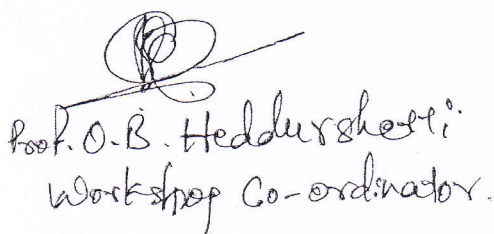 Prof. O.B. Heddurshetti
Workshop Co-ordinator.